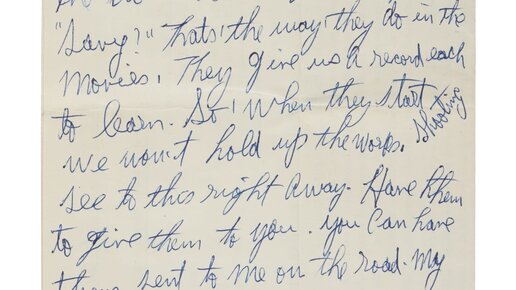 "Savy?" Thats' the way' they do in the
Movies, They give us a record each
to learn. So' when they start shooting
we won't hold up the works.
see to this right away. Have them
to give them to you. you can have
them sent to me on the road. My